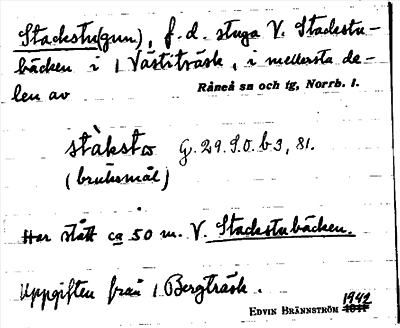 Stackstu(gun), f.d. stuga V. Stackstu-
bäcken i 1 Västiträsk, i mellersta de-
len av Råneå sn och tg, Norrb. l.
stàkstω G. 29.9.0. b 3, 81.
(bruksmål)
Har stått ca 50 m. V. Stackstubäcken.
Uppgiften från 1 Bergträsk.
1942
EDVIN BRÄNNSTRÖM